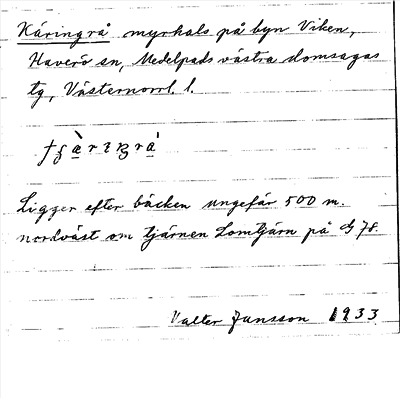 Käringrå myrhals på byn Viken,
Haverö sn, Medelpads västra domsagas
tg, Västernorrl. l.
Ligger efter bäcken ungefär 500 m.
nordväst om tjärnen Lomtjärn på G 78.
Valter Jansson 1933.